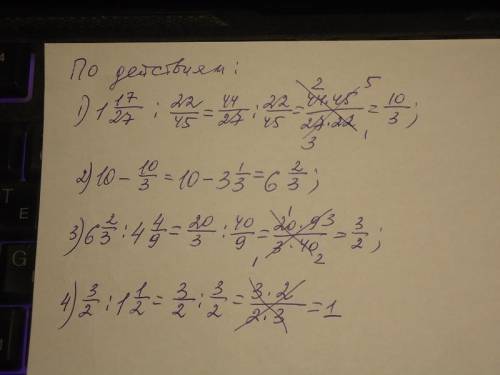 По действиям:
1) 1 17/27 : 22/45 = 44/27 : 22/45 = 44·45/27·22 = 10/3;
2) 10 - 10/3 = 10 - 3 1/3 = 6 2/3;
3) 6 2/3 : 4 4/9 = 20/3 : 40/9 = 20·93/3·40 = 3/2;
4) 3/2 : 1 1/2 = 3/2 : 3/2 = 3·2/2·3 = 1